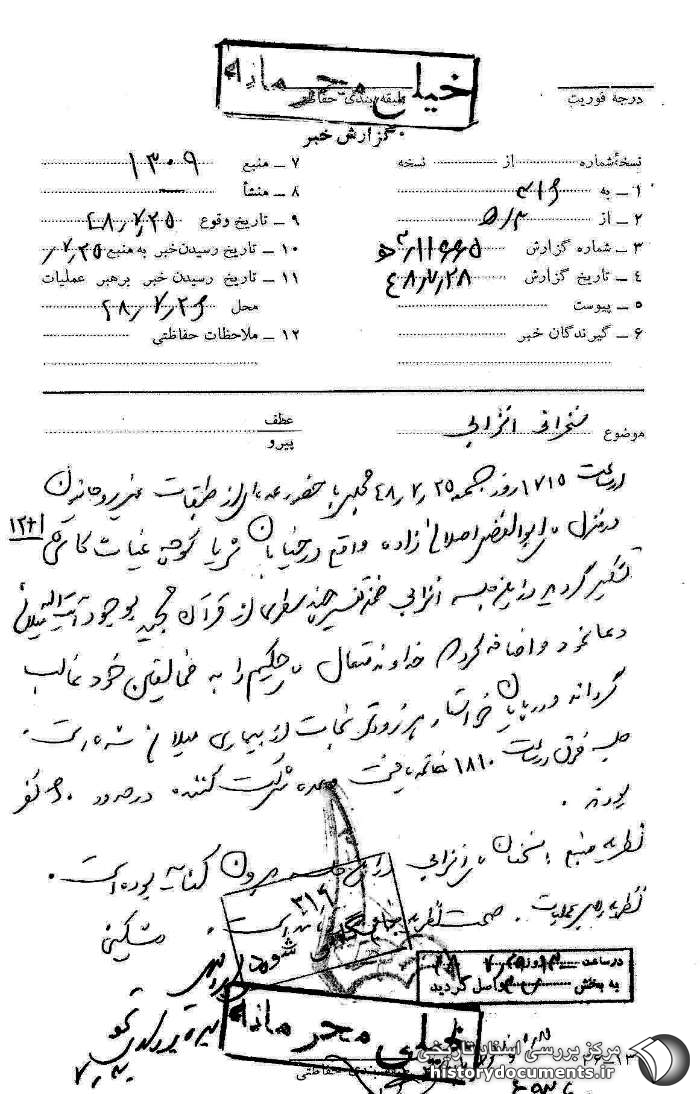 خیلی محرمانه
درجه فوریت
طبقه بندی حفاظتی
گزارش خبر
نسخهٔ شماره از نسخه
۱ ـ به ۳۱۶
۲ ـ از
۳ ـ شماره گزارش
۴ ـ تاریخ گزارش ۴۸/۷/۲۸
۵ ـ پیوست
۶ ـ گیرندگان خبر
۷ ـ منبع ۱۳۰۹
۸ ـ منشأ
۹ ـ تاریخ وقوع ۴۸/۷/۲۵
۱۰ ـ تاریخ رسیدن خبر به منبع ۷/۲۵
۱۱ ـ تاریخ رسیدن خبر برهبر عملیات
محل ۴۸/۷/۲۶
۱۲ ـ ملاحظات حفاظتی
موضوع سخنرانی انزابی
عطف
پیرو
از ساعت ۱۷۱۵ روز جمعه ۴۸/۷/۲۵ مجلسی با حضور عده‌ای از طبقات غیر روحانیون
در منزل ابوالفضل اصلاح زاده واقع در خیابان ثریا کوچه غیاث کاشی
تشکیل گردید در این جلسه انزابی ضمن تفسیر چند سطری از قرآن مجید بوجود آیت‌اله میلانی
دعا نمود و اضافه کرد خداوند متعال حکیم را به مخالفین خود غالب
گرداند و در پایان خواستار هر زودتر نجات از بیماری میلانی شده است.
جلسه فوق در ساعت ۱۸۱۰ خاتمه یافت و عده شرکت کننده در حدود ۶۰ نفر
بودند.
نظریه منبع. سخنان انزابی در این جلسه بدون کنایه بوده است.
نظریه رهبر عملیات. صحت نظریه است. مشکینی
۳۱۶
بایگانی شود
در ساعت روز
به بخش واصل گردید
خیلی محرمانه
طبقه بندی حفاظتی
مرکز بررسی اسناد تاریخی
historydocuments.ir